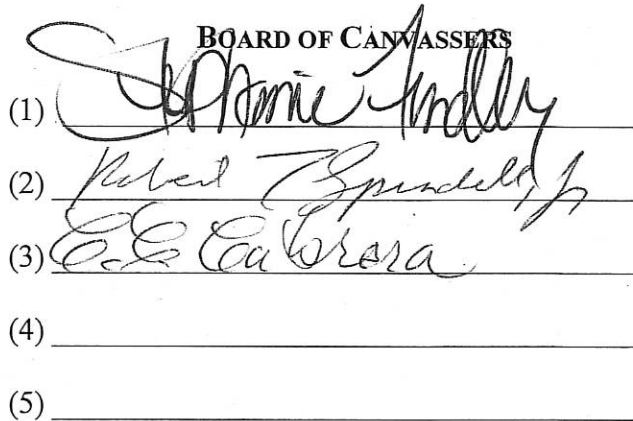 BOARD OF CANVASSERS
(1) Stephanie Findley
(2) Robert Spindell, Jr
(3) C.C. Cabrera
(4)
(5)